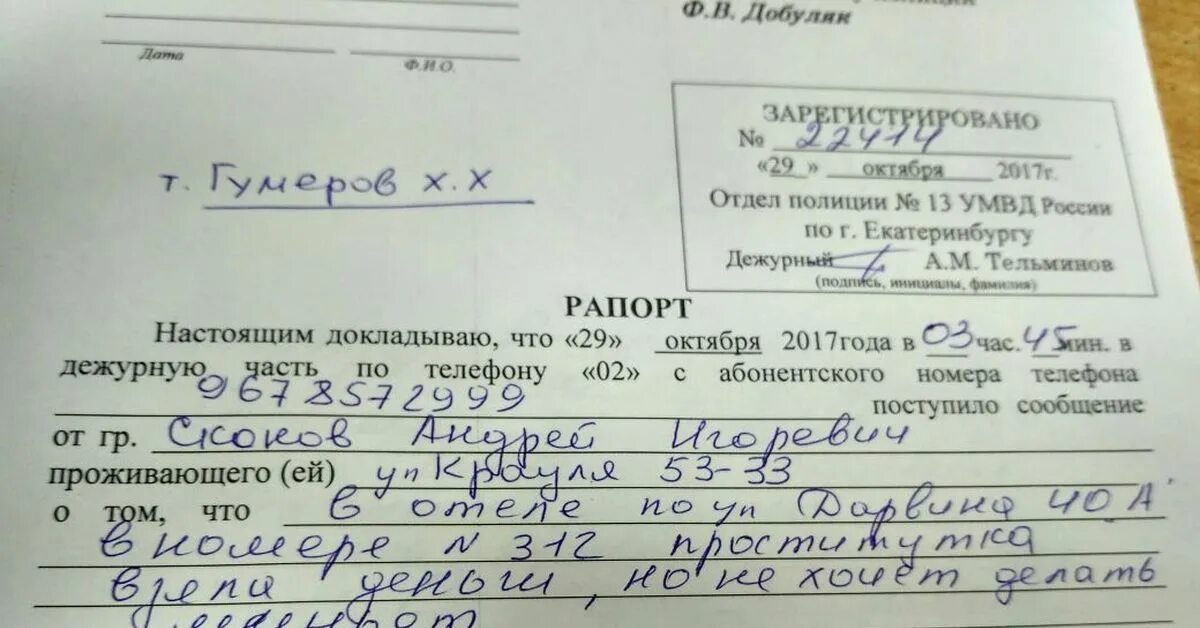 Ф.В. Добуляк
Дата
Ф.И.О.
ЗАРЕГИСТРИРОВАНО
№ 22414
«29 » октября 2017г.
Отдел полиции № 13 УМВД России
по г. Екатеринбургу
Дежурный А.М. Тельминов
(подпись, инициалы, фамилия)
т. Гумеров Х.Х
РАПОРТ
Настоящим докладываю, что «29» октября 2017года в 03 час. 45 мин. в
дежурную часть по телефону «02» с абонентского номера телефона
9678572999 поступило сообщение
от гр. Скоков Андрей Игоревич
проживающего (ей) ул Крауля 53-33
о том, что в отеле по ул Дарвина 40 А
в номере N 312 проститутка
взяла деньги, но не хочет делать